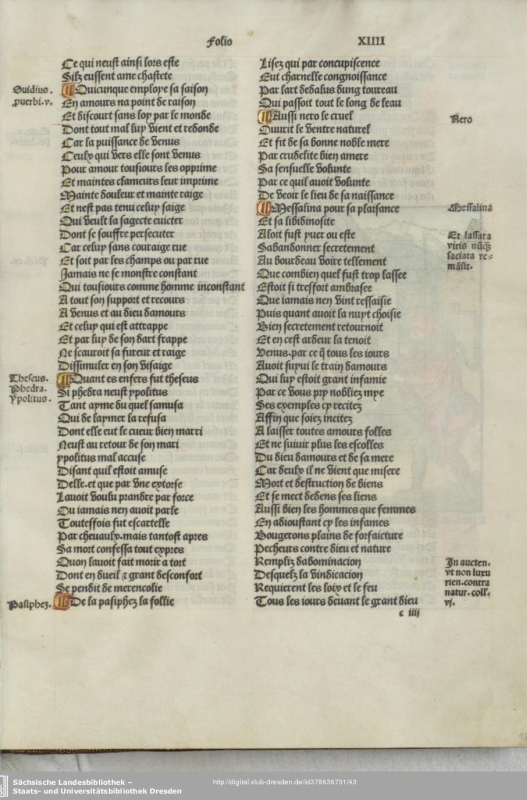 Folio
XIIII
Ce qui neust ainsi lors este
Silz eussent ame chastete
Ouidius.
puerbi. v.
Quicunque employe sa saison
En amours na point de raison
Et discourt sans loy par le monde
Dont tout mal luy vient et redonde
Car la puissance de Venus
Ceulx qui vers elle sont venus
Pour amour tousiours les opprime
Et maintes clameurs leur imprime
Mainte douleur et mainte raige
Et nest pas tenu celuy saige
Qui veult la sagecte euicter
Dont se souffre persecuter
Car celuy sans couraige rue
Et soit par les champs ou par rue
Jamais ne se monstre constant
Qui tousiours comme homme inconstant
A tout son support et recours
A Venus et au dieu damours
Et celuy qui est attrappe
Et par luy de son dart frappe
Ne scauroit sa fureur et raige
Dissimuler en son visaige
Theseus.
Phedra.
Ypolitus.
Quant es enfers fut theseus
Si phedra neust ypolitus
Tant ayme du quel samusa
Qui de laymer la refusa
Dont elle eut le cueur bien marri
Neust au retour de son mari
ypolitus mal accuse
Disant quil estoit amuse
Delle. et que par vne extorse
Lauoit voulu prandre par force
Ou iamais nen auoit parle
Toutesfois fut escartelle
Par cheuaulx. mais tantost apres
Sa mort confessa tout expres
Quon lauoit fait morir a tort
Dont en dueil ⁊ grant desconfort
Se pendit de merencolie
Pasiphe.
De la pasiphe la follie
Lisez qui par concupiscence
Eut charnelle congnoissance
Par lart dedalus dung toureau
Qui passoit tout le long de leau
Nero
Aussi nero le cruel
Ouurit le ventre naturel
Et fit de sa bonne noble mere
Par crudelite bien amere
Sa sensuelle volunte
Par ce quil auoit volunte
De veoir le lieu de sa naissance
Messalina
Messalina pour sa plaisance
Et sa libidinosite
Aloit fust yuer ou este
Et lassata
viris nūq̄
saciata re-
māsit.
Sabandonner secretement
Au bourdeau voire tellement
Que combien quel fust trop lassee
Estoit si tresfort ambrasee
Que iamais nen vint ressaisie
Puis quant auoit la nuyt choisie
Bien secretement retournoit
Et en cest ardeur la tenoit
Venus. par ce q̄ tous les iours
Auoit suyui le train damours
Qui luy estoit grant infamie
Par ce vous pry nobliez mye
Ses exemples cy recitez
Affin que soiez incitez
A laisser toutes amours folles
Et ne suiuir plus les escolles
Du dieu damours et de sa mere
Car deulx il ne vient que misere
Mort et destruction de biens
Et se mect dedens ses liens
Aussi bien les hommes que femmes
En adioustant cy les infames
Bougerons plains de forfaicture
Pecheurs contre dieu et nature
Rempliz dabominacion
In aucten.
vt non luxu
rien. contra
natur. coll.
vj.
Desquelz la vindicacion
Requierent les loix et le feu
Tous les iours deuant le grant dieu
c iiij
Sächsische Landesbibliothek –
Staats- und Universitätsbibliothek Dresden
http://digital.slub-dresden.de/id378636731/43